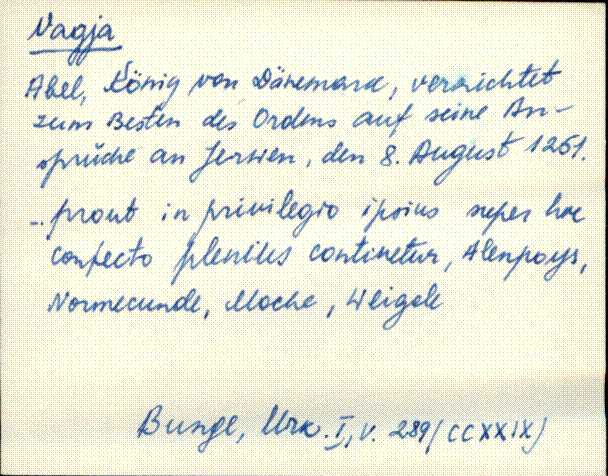 Vagja
Abel, König von Dänemark, verzichtet
zum Besten des Ordens auf seine An-
sprüche an Jerwen, den 8. August 1251.
... prout in privilegio ipsius super hoc
confecto plenius continetur, Alenpoys,
Normecunde, Moche, Weigele
Bunge, Urk. I, v. 289 (CCXXIX)